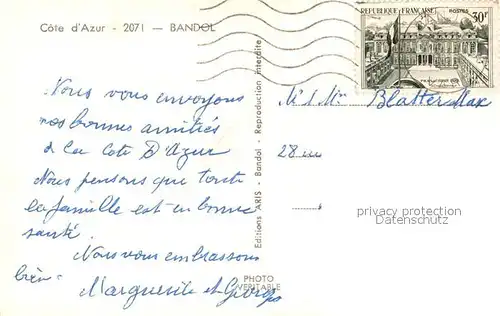 Côte d'Azur - 2071 — BANDOL
RÉPUBLIQUE FRANÇAISE
POSTES
30F
Nous vous envoyons
nos bonnes amitiés
de la Cote D'Azur
Nous pensons que toute
la famille est en bonne
santé.
Nous vous embrassons
bien.
Marguerite et Georges
Editions "ARIS - Bandol - Reproduction interdite
PHOTO
VERITABLE
M. & Mme Blatter Max
28
privacy protection
Datenschutz